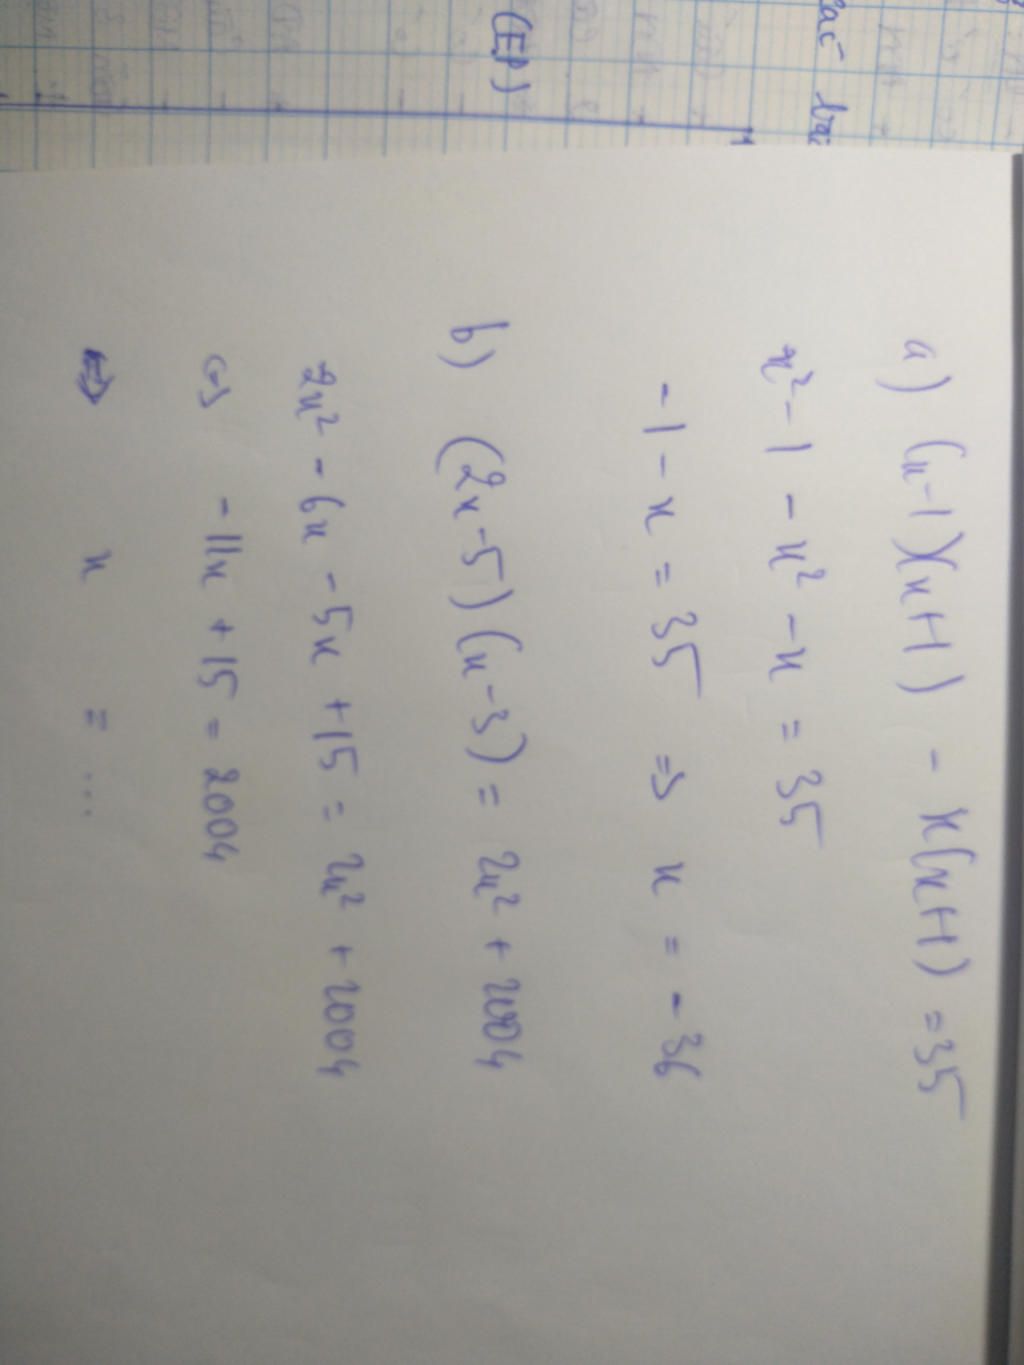 (EP)
bài
a) (x-1)(x+1) - x(x+1) = 35
x² - 1 - x² - x = 35
- 1 - x = 35 => x = - 36
b) (2x-5)(x-3) = 2x² + 2004
2x² - 6x - 5x + 15 = 2x² + 2004
<=> - 11x + 15 = 2004
<=> x = ...